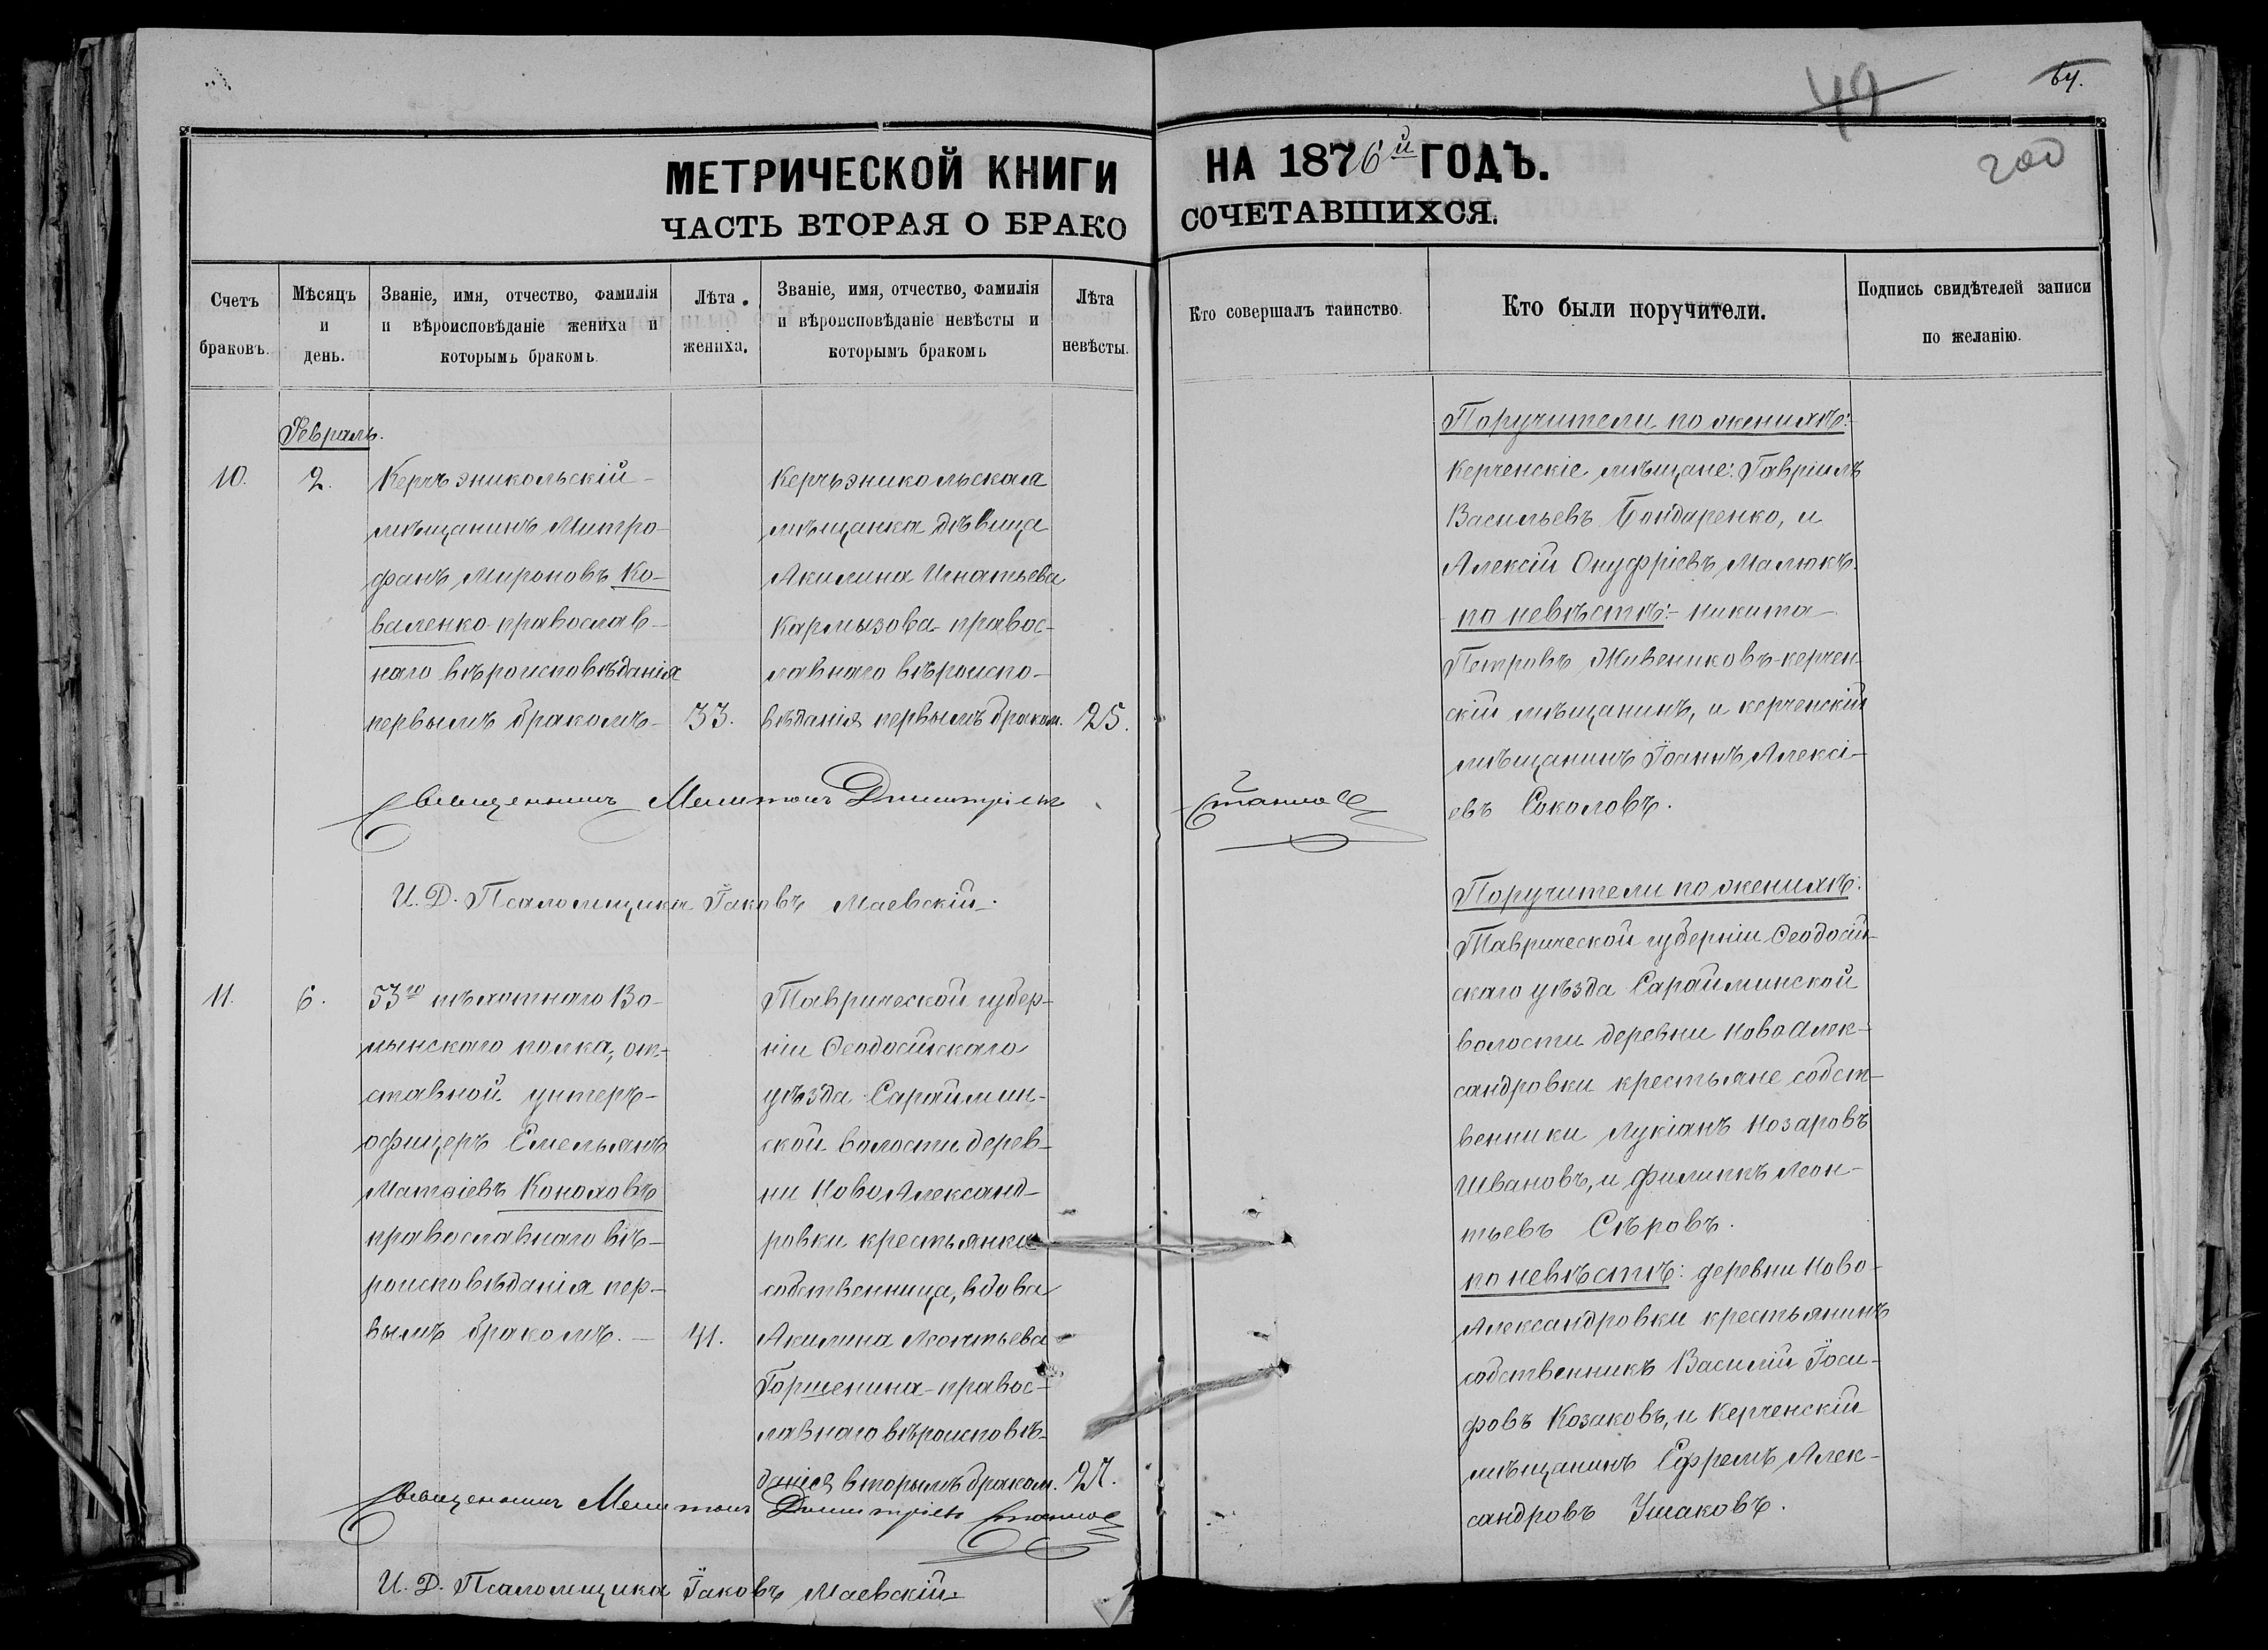 49
64.
200
МЕТРИЧЕСКОЙ КНИГИ НА 1876й ГОДЪ.
ЧАСТЬ ВТОРАЯ О БРАКОСОЧЕТАВШИХСЯ.
Счетъ
браковъ.
Мѣсяцъ
и
день.
Званіе, имя, отчество, фамилія
и вѣроисповѣданіе жениха и
которымъ бракомъ.
Лѣта
жениха.
Званіе, имя, отчество, фамилія
и вѣроисповѣданіе невѣсты и
которымъ бракомъ
Лѣта
невѣсты.
Кто совершалъ таинство.
Кто были поручители.
Подпись свидѣтелей записи
по желанію.
Февраль.
10.
2.
Керчьэникольскій
мѣщанинъ Митро-
фанъ Мироновъ Ко-
валенко православ-
наго вѣроисповѣданія
первымъ бракомъ
33.
Керчьэникольская
мѣщанка дѣвица
Акилина Игнатьева
Кармызова правос-
лавнаго вѣроиспо-
вѣданія первымъ браком.
25.
Поручители по женихѣ:
Керченскіе мѣщане: Гавріилъ
Васильевъ Бондаренко, и
Алексій Онуфріевъ Малюкъ.
по невѣстѣ: Никита
Петровъ Живениковъ керчен-
скій мѣщанинъ, и керченскій
мѣщанинъ Іоаннъ Алексі-
евъ Соколовъ.
Священникъ Мелитонъ Димитріевъ
И. Д. Псаломщика Іаковъ Маевскій.
11.
6.
53го пѣхотнаго Во-
лынскаго полка, от-
ставной унтеръ-
офицеръ Емельянъ
Матѳіевъ Коноховъ
православнаго вѣ-
роисповѣданія пер-
вымъ бракомъ.
41.
Таврической губер-
ніи Ѳеодосійскаго
уѣзда Сараймин-
ской волости дерев-
ни НовоАлександ-
ровки крестьянка
собственница, вдова
Акилина Леонтьева
Горшенина правос-
лавнаго вѣроисповѣ-
данія вторымъ браком.
27.
Поручители по женихѣ:
Таврической губерніи Ѳеодосій-
скаго уѣзда Сарайминской
волости деревни НовоАлек-
сандровки крестьяне собст-
венники Лукіанъ Назаровъ
Ивановъ, и Филиппъ Леон-
тьевъ Сѣровъ.
по невѣстѣ: деревни Ново-
Александровки крестьянинъ
собственникъ Василій Іоси-
фовъ Козаковъ, и Керченскій
мѣщанинъ Ефремъ Алек-
сандровъ Ушаковъ.
Священникъ Мелитонъ Димитріевъ
И. Д. Псаломщика Іаковъ Маевскій.